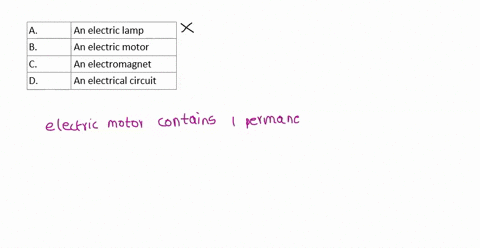 A. An electric lamp
B. An electric motor
C. An electromagnet
D. An electrical circuit
electric motor contains 1 permane